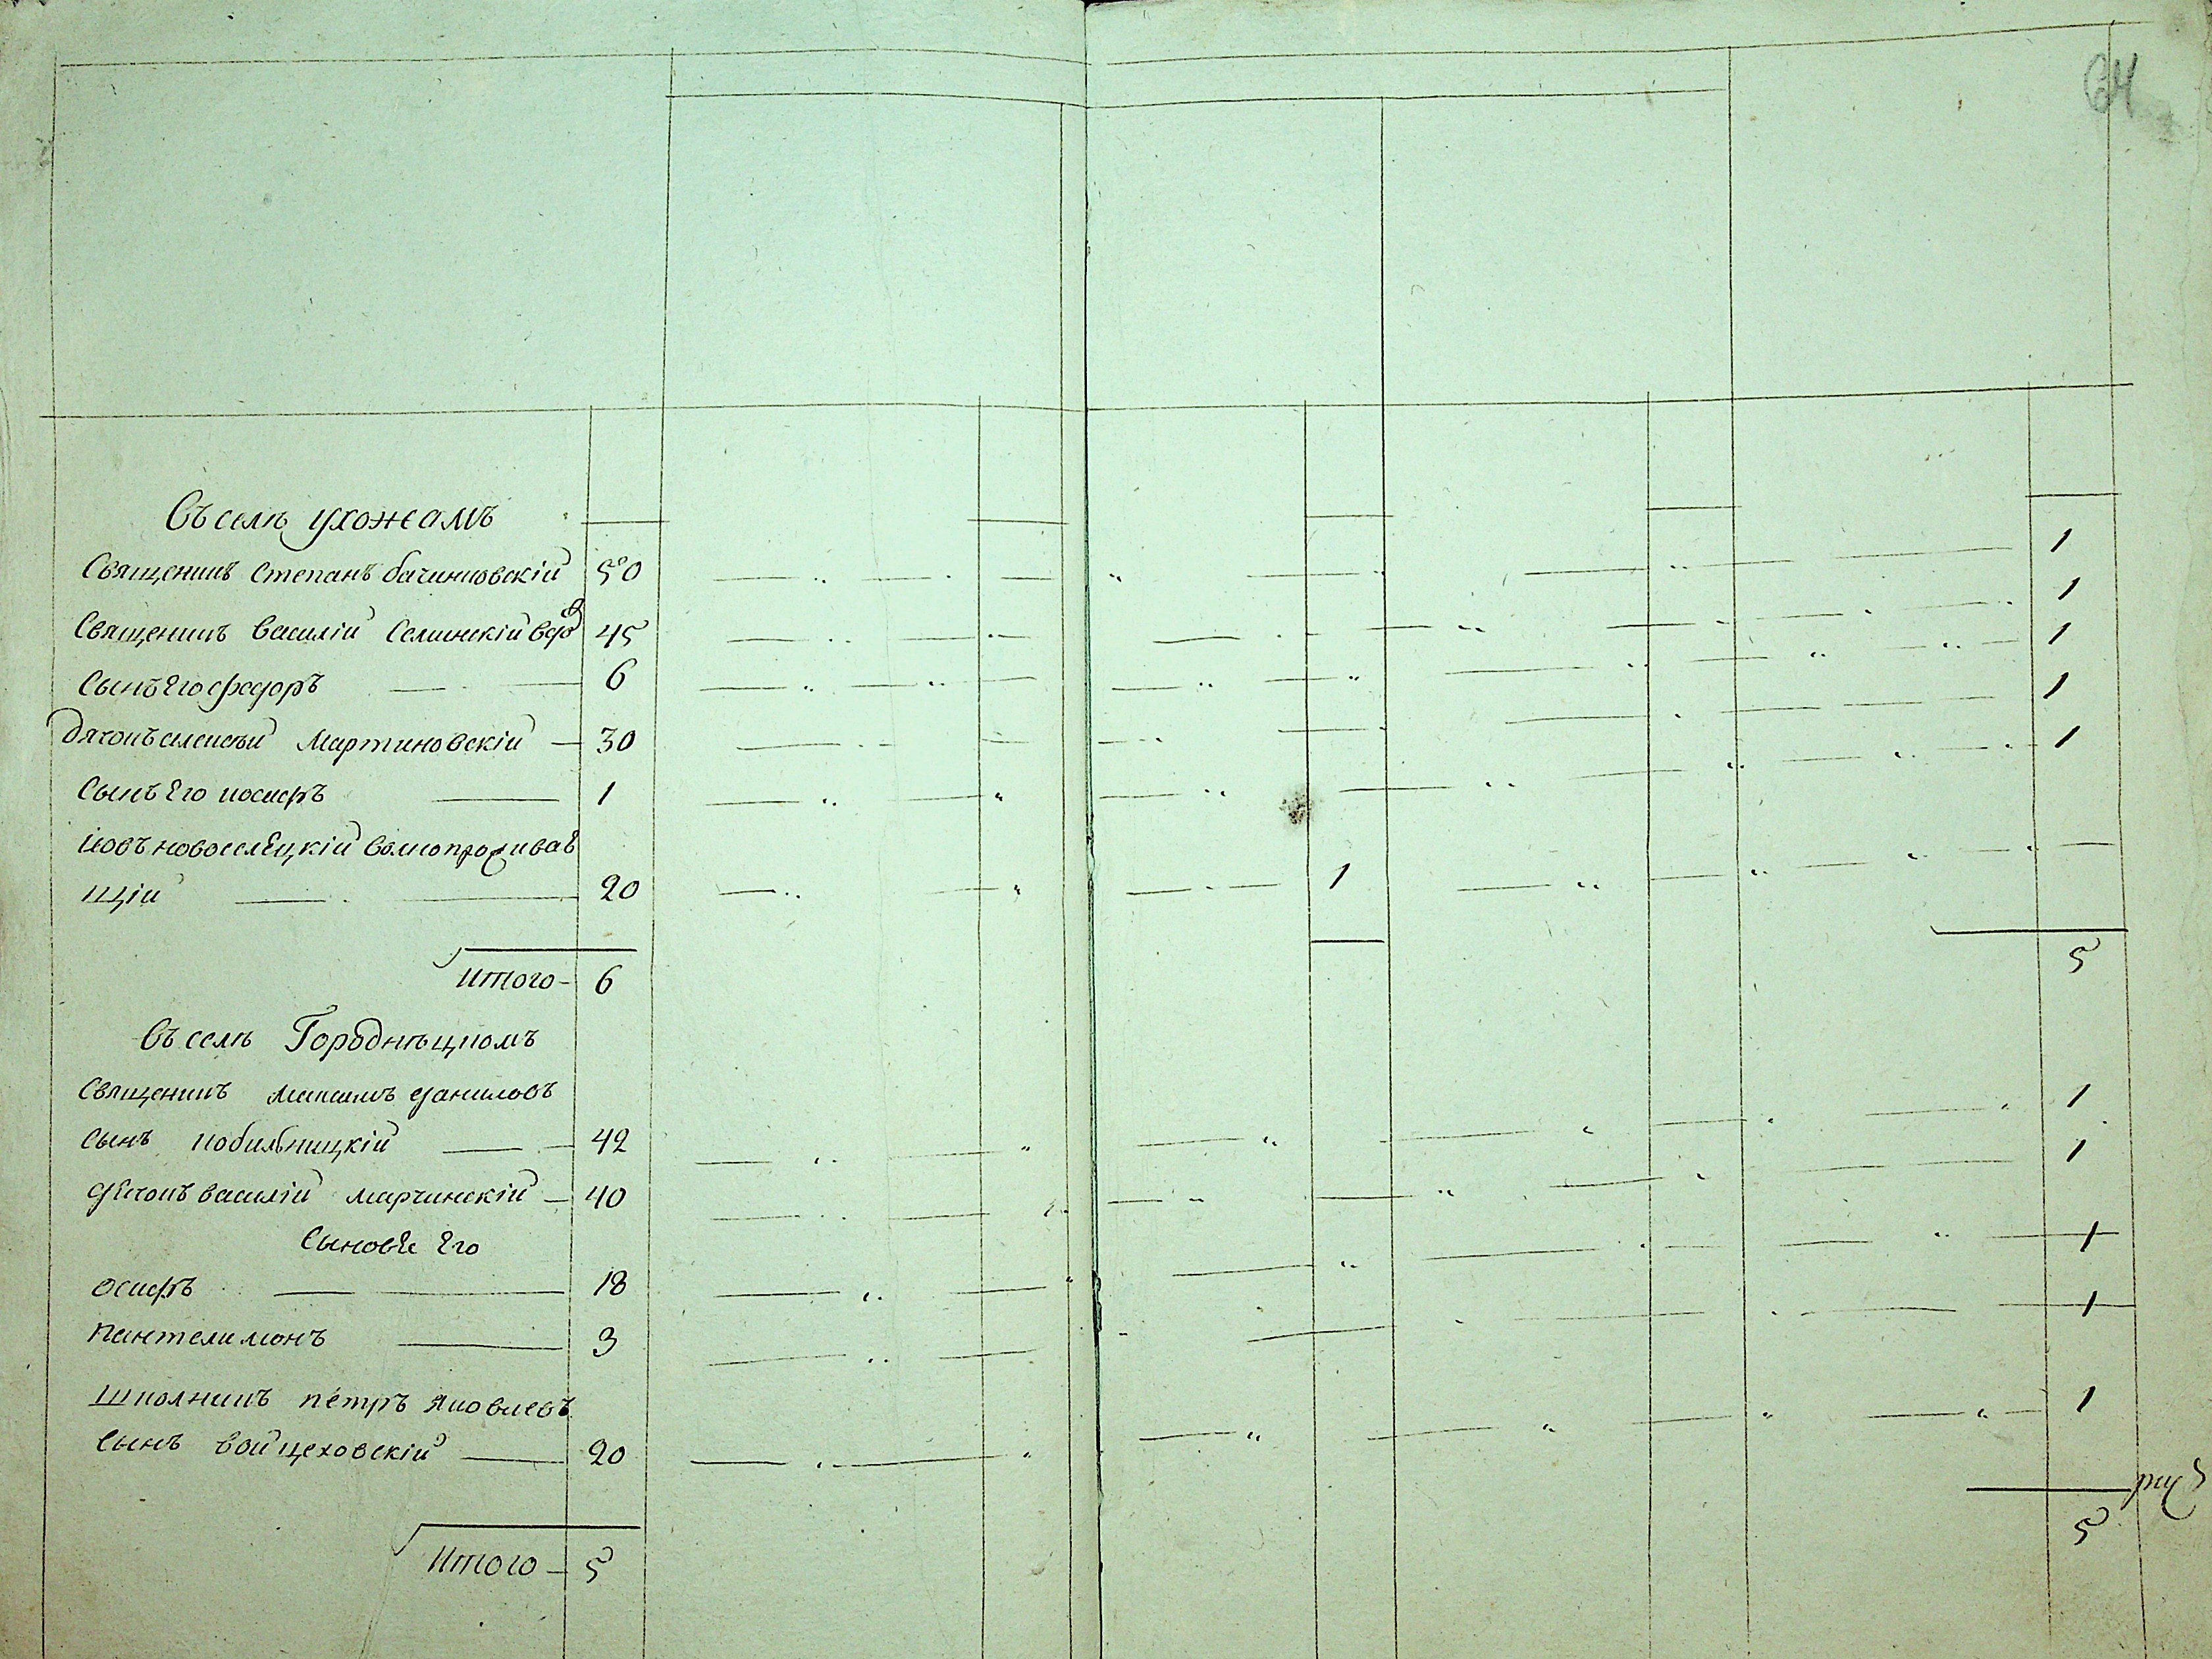 64
Въ селѣ ухожамъ
Священикъ Степанъ бачинковскій 50 1
Священикъ василій Селинскій вдо 45 1
Сынъ Его федоръ 6 1
дячокъ алексѣй Мартиновскій 30 1
Сынъ Его иосифъ 1 1
иовъ новоселецкій волнопроживаю
щій 20 1
итого 6 5
Въ селѣ Городнѣцкомъ
Священикъ максимъ даниловъ
сынъ кобильницкій 42 1
дячокъ василій марчинскій 40 1
сынове Его
осифъ 18 1
пантелимонъ 3 1
школникъ петръ яковлевъ
сынъ войцеховскій 20 1
итого 5 5